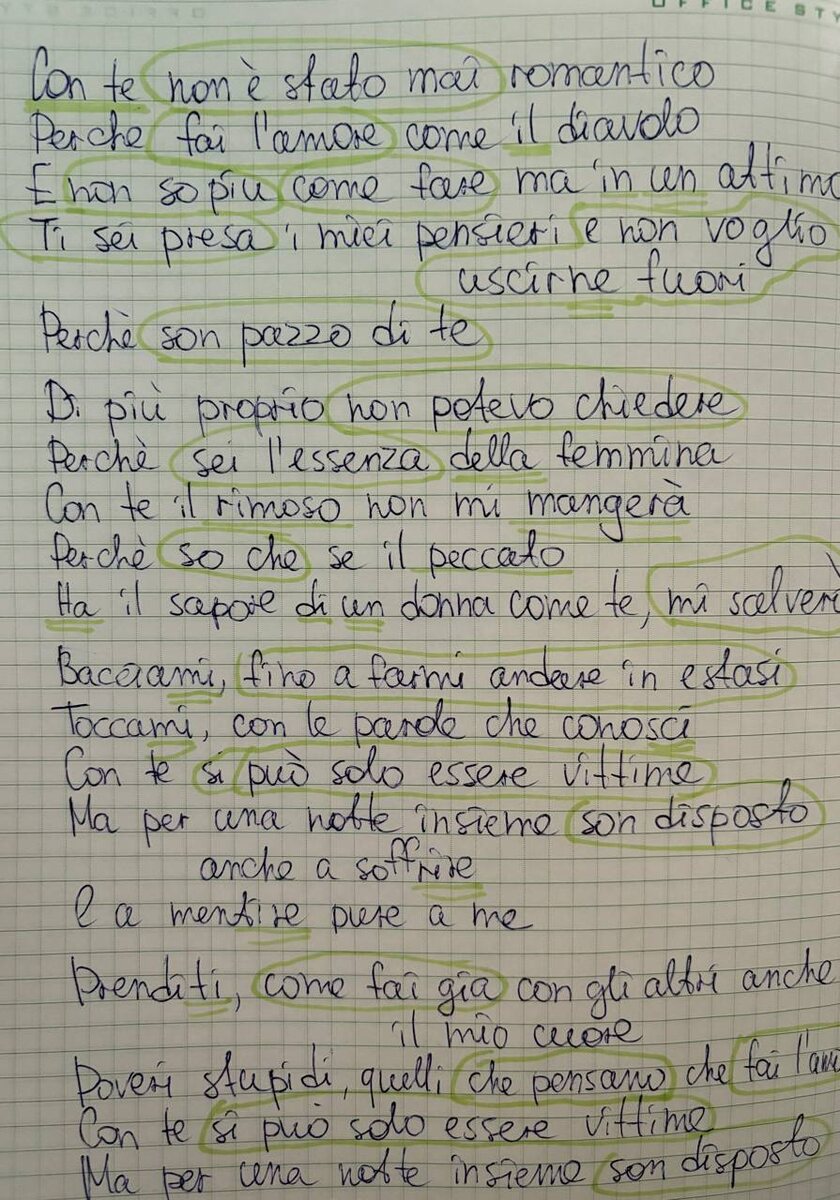 OFFICE STY
Con te non è stato mai romantico
Perchè fai l'amore come il diavolo
E non so più come fare ma in un attimo
Ti sei presa i miei pensieri e non voglio
uscirne fuori
Perchè son pazzo di te
Di più proprio non potevo chiedere
Perchè sei l'essenza della femmina
Con te il rimoso non mi mangerà
Perchè so che se il peccato
Ha il sapore di un donna come te, mi salverà
Baciami, fino a farmi andare in estasi
Toccami, con le parole che conosci
Con te si può solo essere vittime
Ma per una notte insieme son disposto
anche a soffrire
E a mentire pure a me
Prenditi, come fai già con gli altri anche
il mio cuore
Poveri stupidi, quelli che pensano che fai l'am
Con te si può solo essere vittime
Ma per una notte insieme son disposto